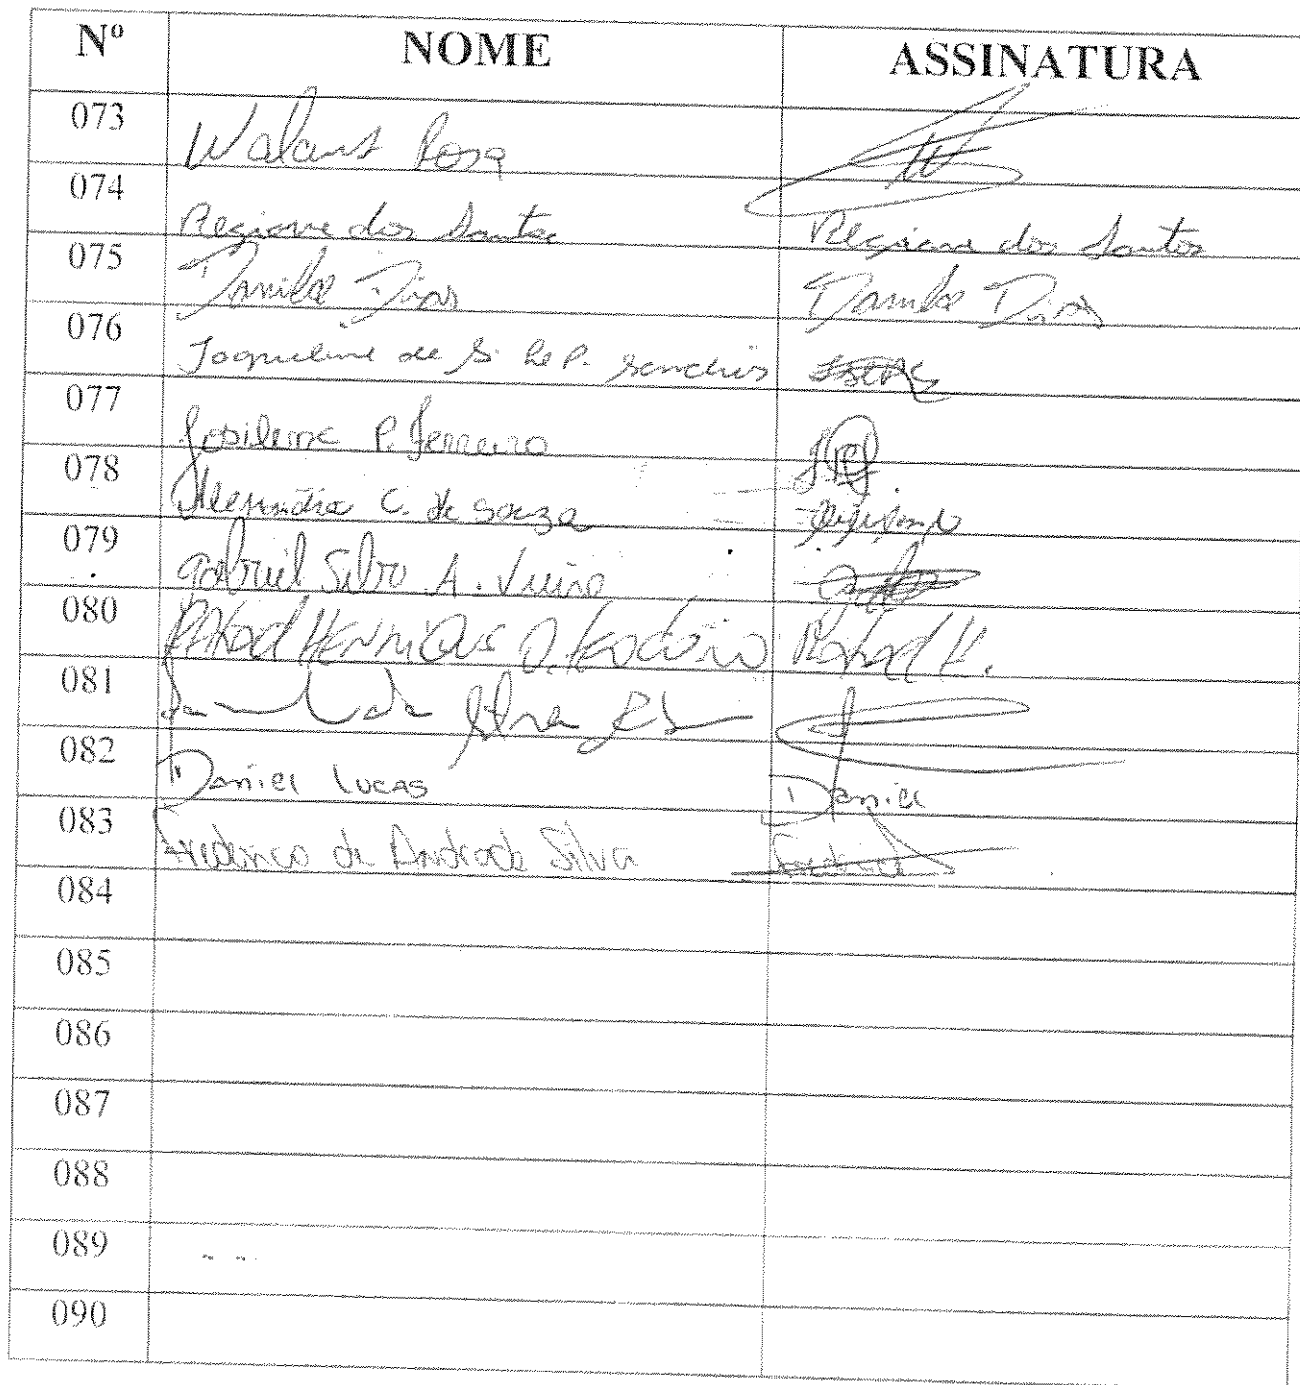 Nº NOME ASSINATURA
073 Rosa
074 Regiane dos Santos Regiane dos Santos
075 Danilo Dias Danilo Dias
076 Jaqueline de S. P. Sanches
077 Josilene P. Ferreira
078 C. de Souza
079 Gabriel Silva A. Vieira
080 Rafael Henrique D. Rafael H.
081 da Silva
082 Daniel Lucas Daniel
083 Frederico de Andrade Silva
084
085
086
087
088
089
090